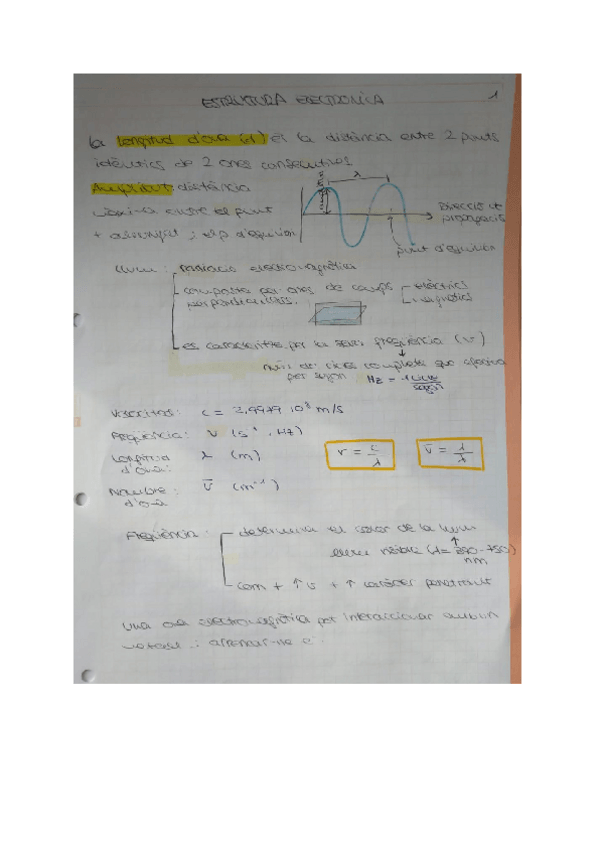 ESTRUCTURA ELECTRÒNICA
1
La longitud d'ona (λ) és la distància entre 2 punts
idèntics de 2 ones consecutives
Amplitud: distància
entre el punt
λ
Direcció de
propagació
punt d'equilibri
Llum: radiació electromagnètica
composta per ones de camps
elèctrics
magnètics
perpendiculars.
es caracteritza per la seva freqüència (ν)
núm. de cicles complets que efectua
per segon
Hz = 1 cicle
segon
Velocitat: c = 2,9979 10⁸ m/s
Freqüència: ν (s⁻¹, Hz)
Longitud λ (m)
d'ona:
Nombre : ν̅ (m⁻¹)
d'ona
ν = c/λ
ν̅ = 1/λ
Freqüència:
determina el color de la llum
visible (λ = 390-750)
nm
com + ↑ ν + ↑ caràcter penetrant
Una ona electromagnètica pot interaccionar amb un
metall i arrencar-ne e⁻.